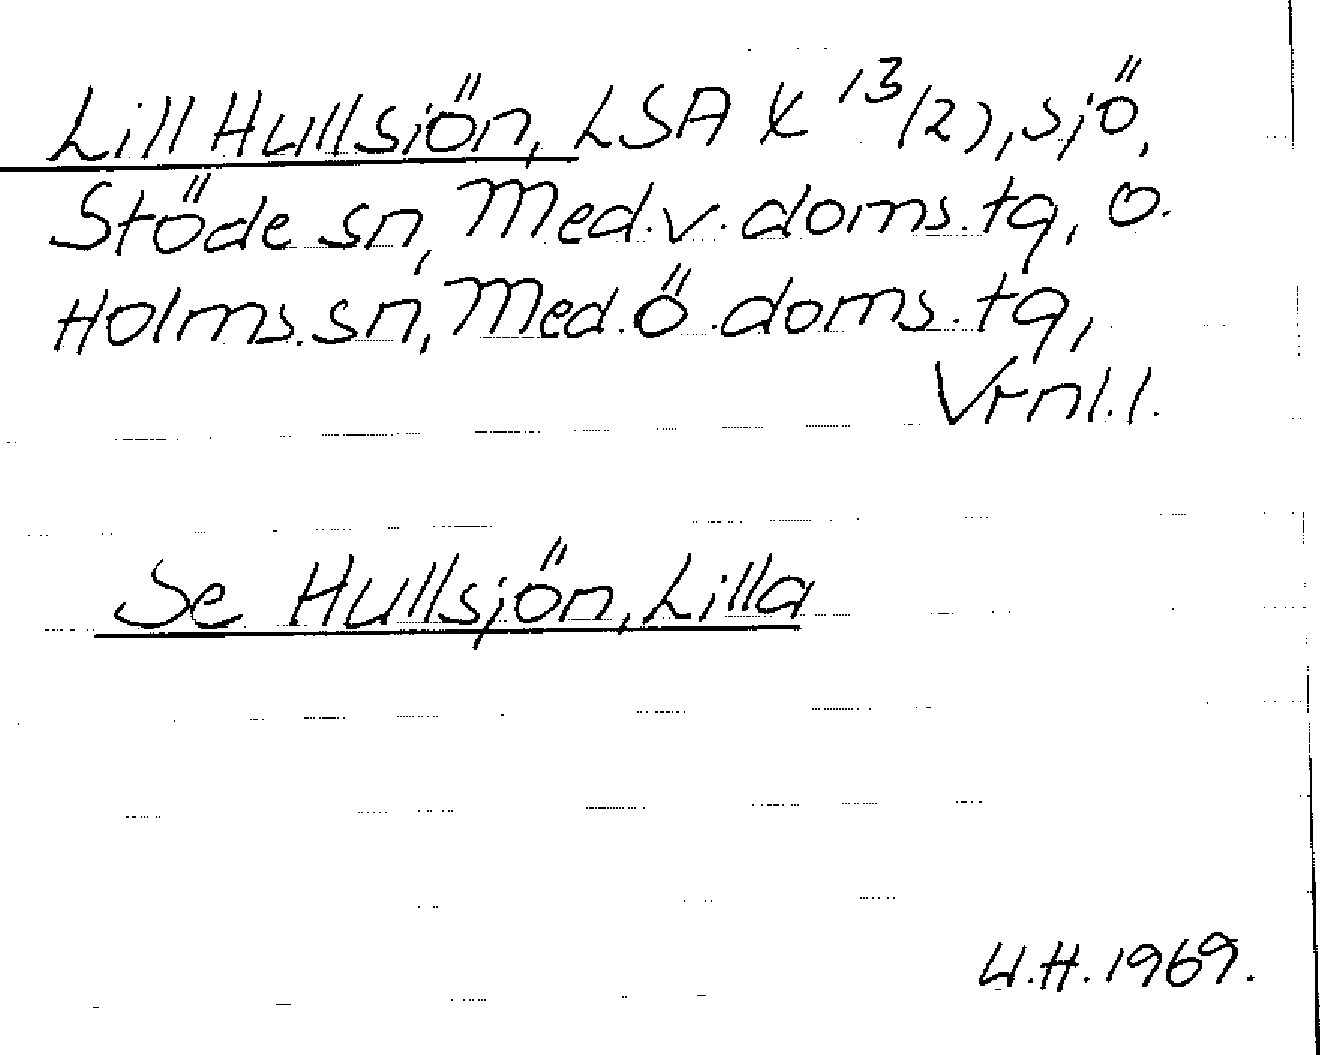 Lill Hullsiön, LSA X 13/2), sjö,
Stöde sn, Med.v. doms.tg, o.
Holms.sn, Med.ö. doms.tg,
Vrnl.l.
Se Hullsjön, Lilla
U.H. 1969.